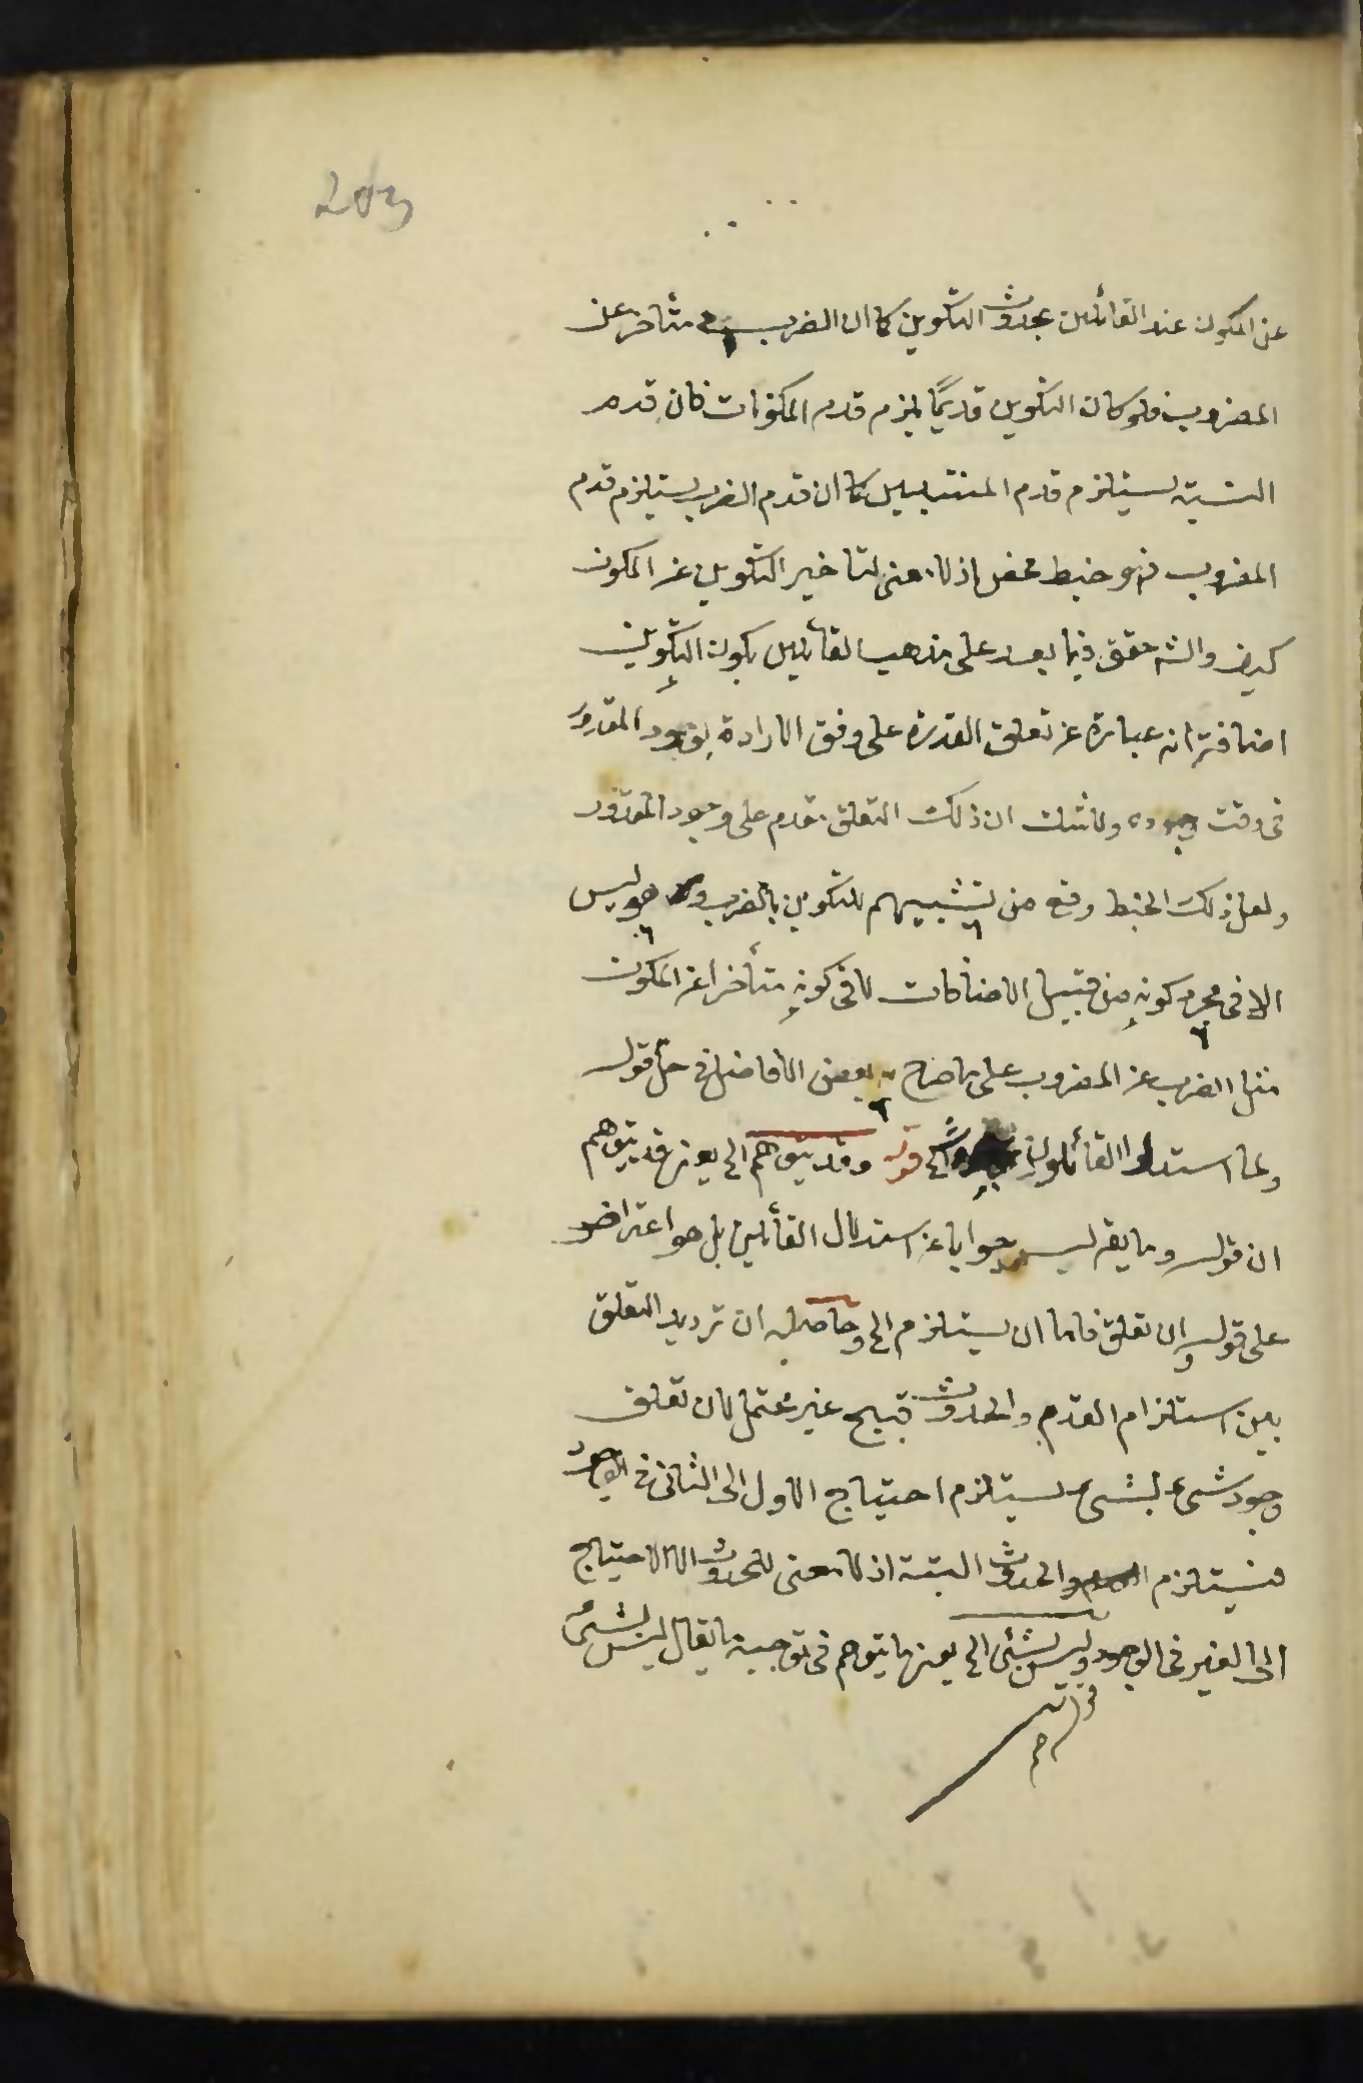 203
عن المكون عند القائلين بحدوث التكوين كما ان الضرب متأخر عن
المضروب فلو كان التكوين قديمًا يلزم قدم المكونات فان قدم
النسبة يستلزم قدم المنتسبين كما ان قدم الضرب يستلزم قدم
المضروب فهو خبط محض اذ لا معنى لتأخير التكوين عن المكون
كيف والش حقق فيما بعد على مذهب القائلين بكون التكوين
اضافة انه عبارة عن تعلق القدرة على وفق الارادة بوجود المقدور
فى وقت وجوده ولا شك ان ذلك التعلق مقدم على وجود المقدور
ولعل ذلك الخبط وقع من تشبيههم للتكوين بالضرب وهو ليس
الا فى مجرد كونه من قبيل الاضافات لا فى كونه متأخرا عن المكون
مثل الضرب عن المضروب على ما صرح به بعض الافاضل فى حل قوله
ولما استدل القائلون بحدوث الخ قوله وقد يتوهم الخ يعنى قد يتوهم
ان قوله وما يقر ليس جوابا عن استدلال القائلين بل هو اعتراض
على قوله وان تعلق فاما ان يستلزم الخ وحاصله ان ترديد التعلق
بين استلزام القدم والحدوث قبيح غير محتمل لان تعلق
وجود شىء بشىء يستلزم احتياج الاول الى الثانى فى الوجود
فيستلزم الحدوث البتة اذ لا معنى للحدوث الا الاحتياج
الى الغير فى الوجود وليس بشئ الخ يعنى ما يتوهم فى توجيه ما يقال ليس بشئ